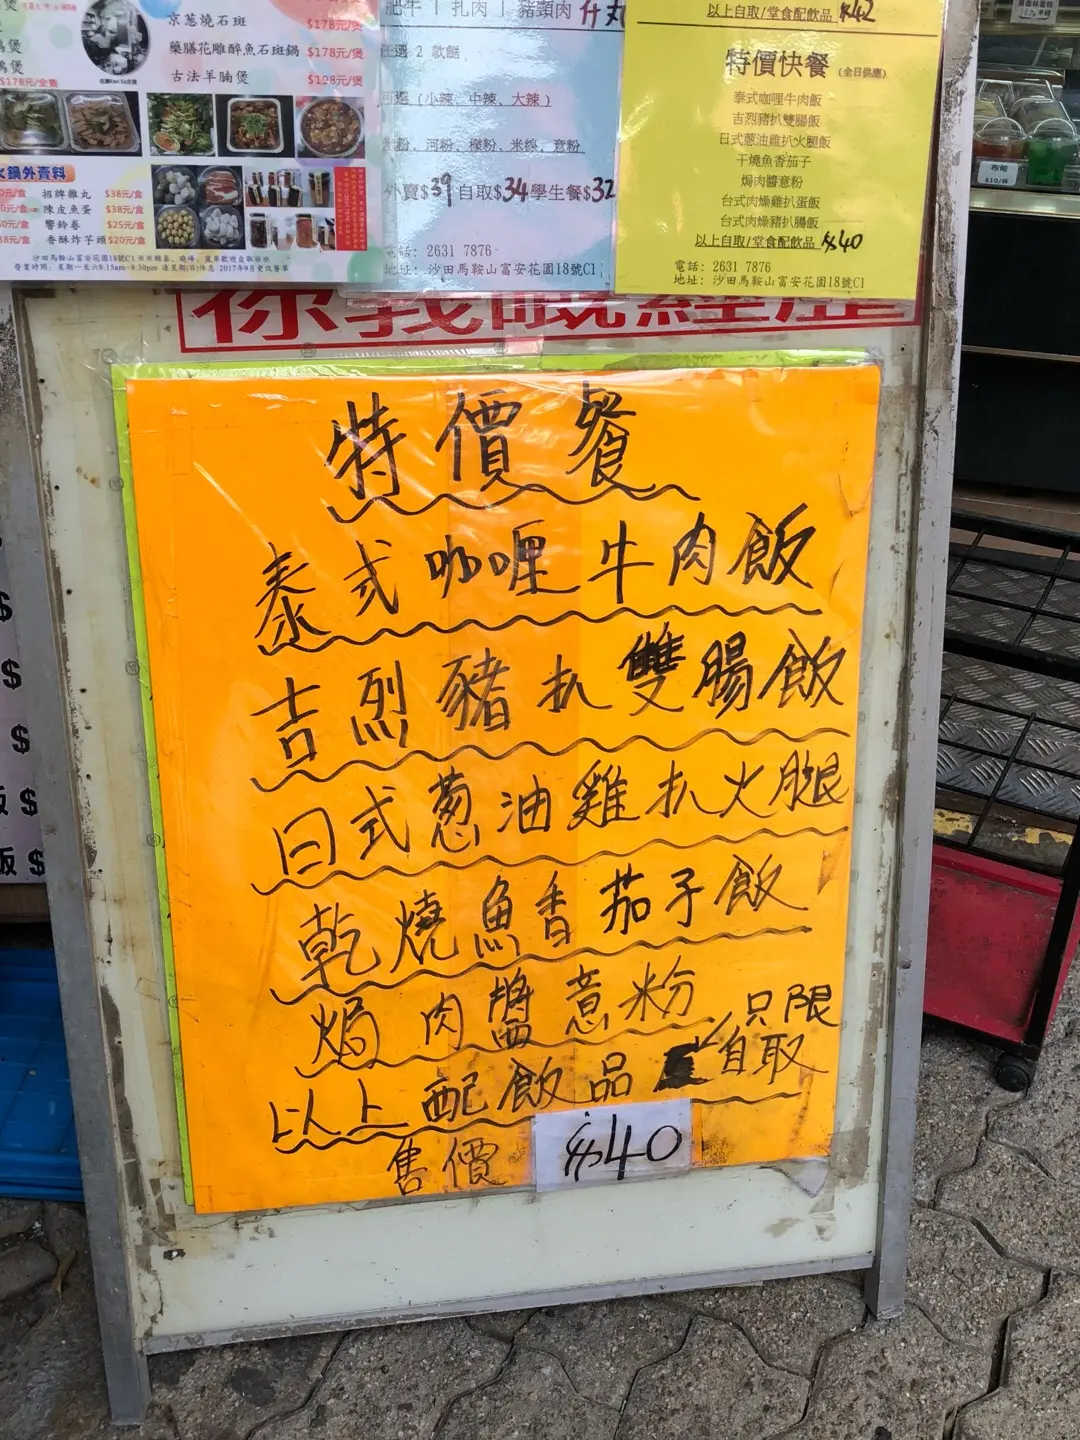 京葱燒石斑 $178元/煲
藥膳花雕醉魚石斑鍋 $178元/煲
古法羊腩煲 $198元/煲
$178元/全隻
火鍋外賣料
招牌雜丸 $38元/盒
陳皮魚蛋 $38元/盒
響鈴卷 $25元/盒
香酥炸芋頭 $20元/盒
沙田馬鞍山富安花園18號C1
營業時間：星期一至六8:15am-8:30pm 逢星期(日)休息 2017年9月更改餐單
肥牛 | 扎肉 | 豬頭肉
任選 2 款餸
可選 (小辣、中辣、大辣)
河粉、檬粉、米線、意粉
外賣$39 自取$34 學生餐$32
電話: 2631 7876
地址: 沙田馬鞍山富安花園18號C1
以上自取/堂食配飲品 $42
特價快餐 (全日供應)
泰式咖喱牛肉飯
吉烈豬扒雙腸飯
日式蔥油雞扒火腿飯
干燒魚香茄子
焗肉醬意粉
台式肉燥雞扒蛋飯
台式肉燥豬扒腸飯
以上自取/堂食配飲品 $40
電話: 2631 7876
地址: 沙田馬鞍山富安花園18號C1
你我嘅經歷
特價餐
泰式咖喱牛肉飯
吉烈豬扒雙腸飯
日式葱油雞扒火腿
乾燒魚香茄子飯
焗肉醬意粉
以上配飲品 只限自取
售價 $40
布甸
$10/杯